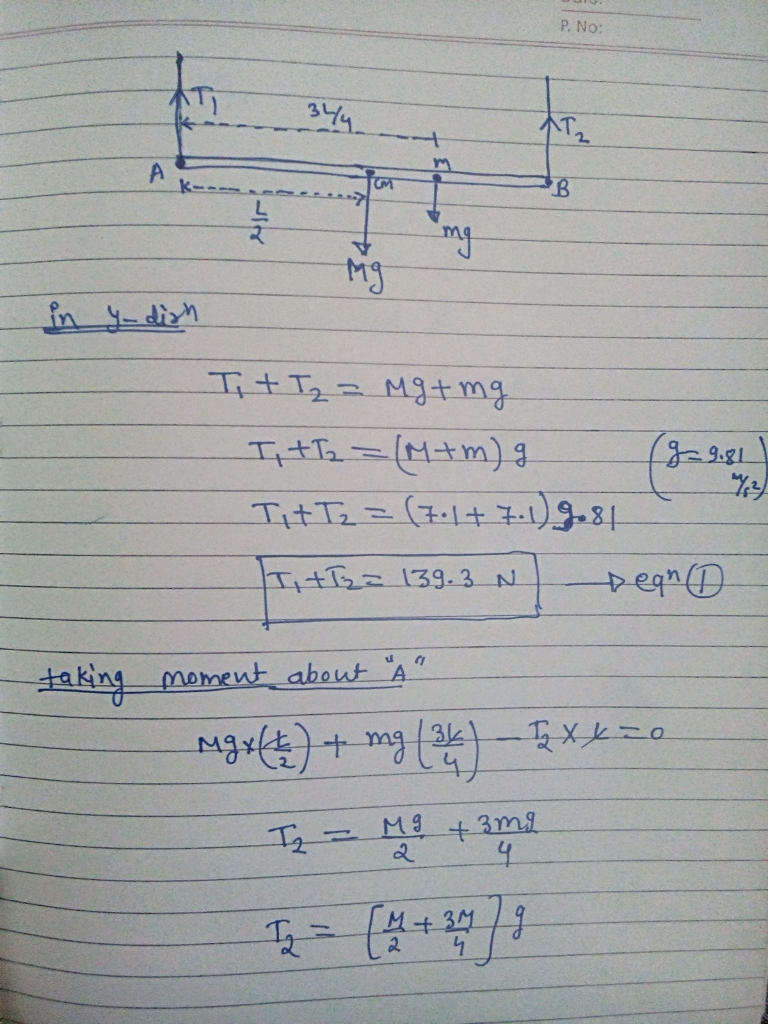 P. No:
T₁
3L/4
T₂
A
cm
m
B
L/2
mg
Mg
in y-dirⁿ
T₁ + T₂ = Mg + mg
T₁ + T₂ = (M + m) g (g = 9.81 m/s²)
T₁ + T₂ = (7.1 + 7.1) 9.81
T₁ + T₂ = 139.3 N → eqⁿ ①
taking moment about "A"
Mg × (L/2) + mg (3L/4) - T₂ × L = 0
T₂ = Mg/2 + 3mg/4
T₂ = [M/2 + 3M/4] g